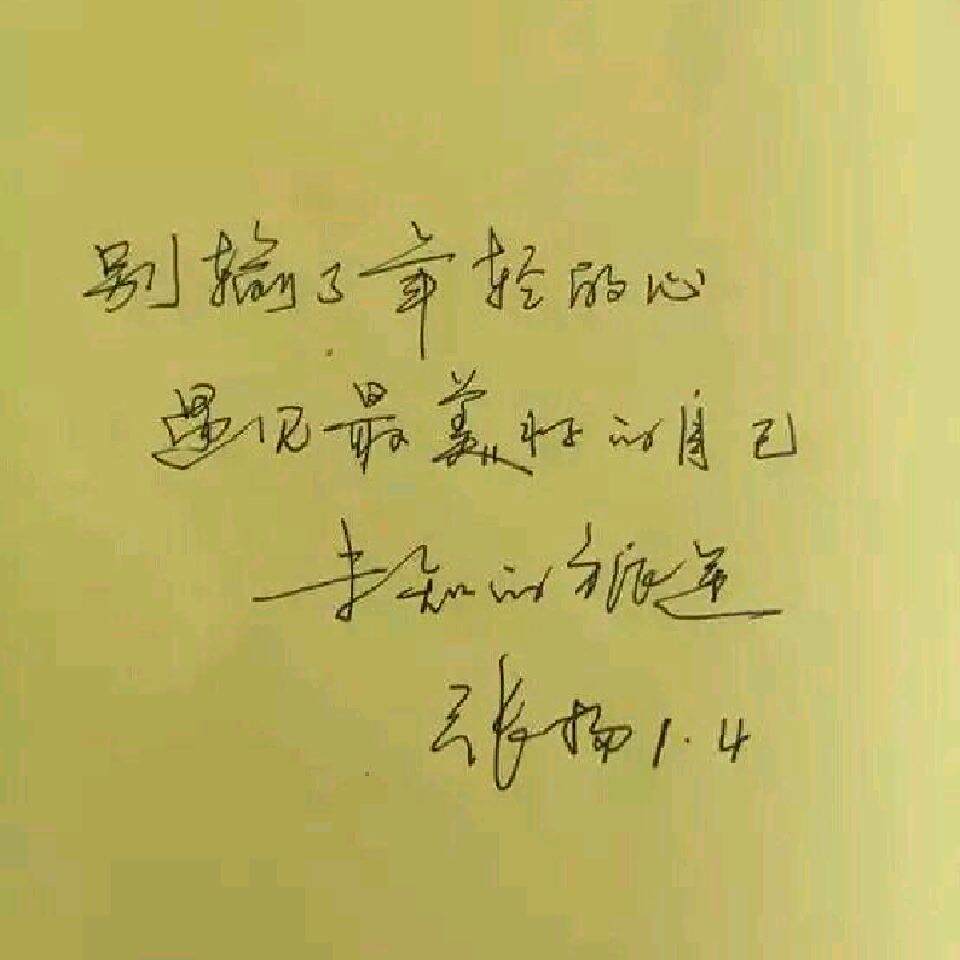 别输了年轻的心
遇见最美好的自己
未知的旅途
张扬 1.4